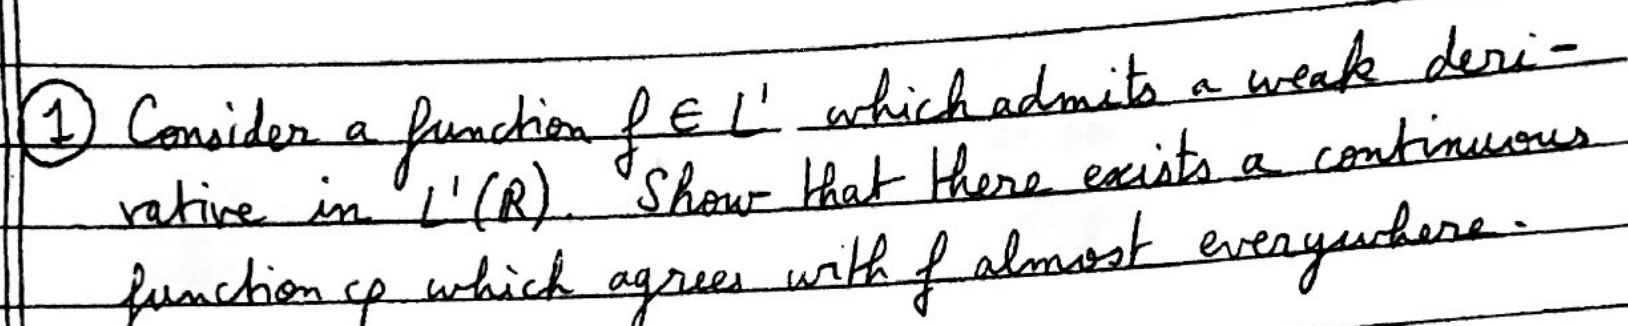 ① Consider a function f ∈ L¹ which admits a weak deri-
vative in L¹(ℝ). Show that there exists a continuous
function φ which agrees with f almost everywhere.